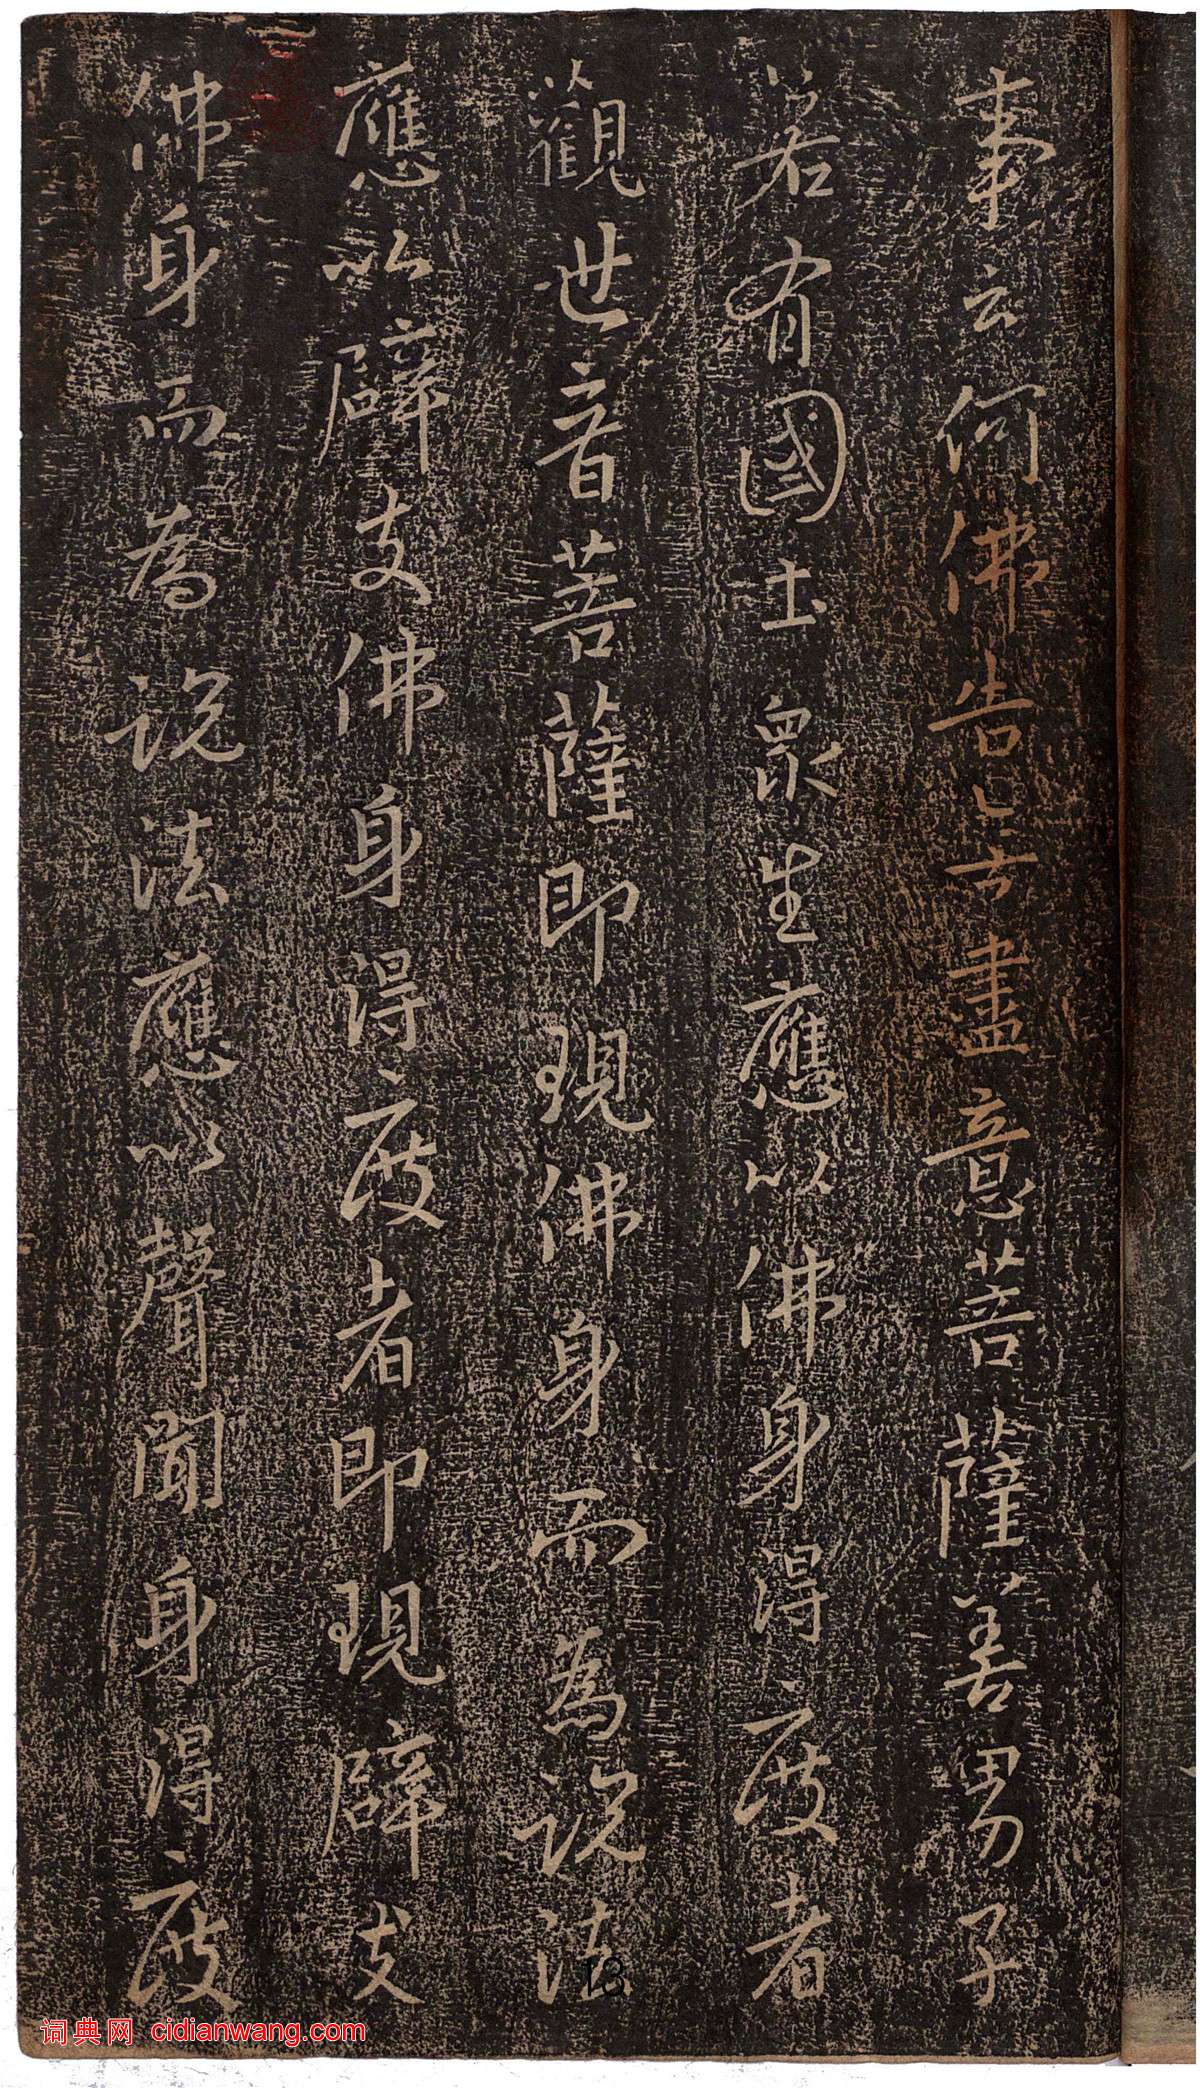 事云何佛告無盡意菩薩善男子
若有國土眾生應以佛身得度者
觀世音菩薩即現佛身而為說法
應以辟支佛身得度者即現辟支
佛身而為說法應以聲聞身得度
13
词典网 cidianwang.com